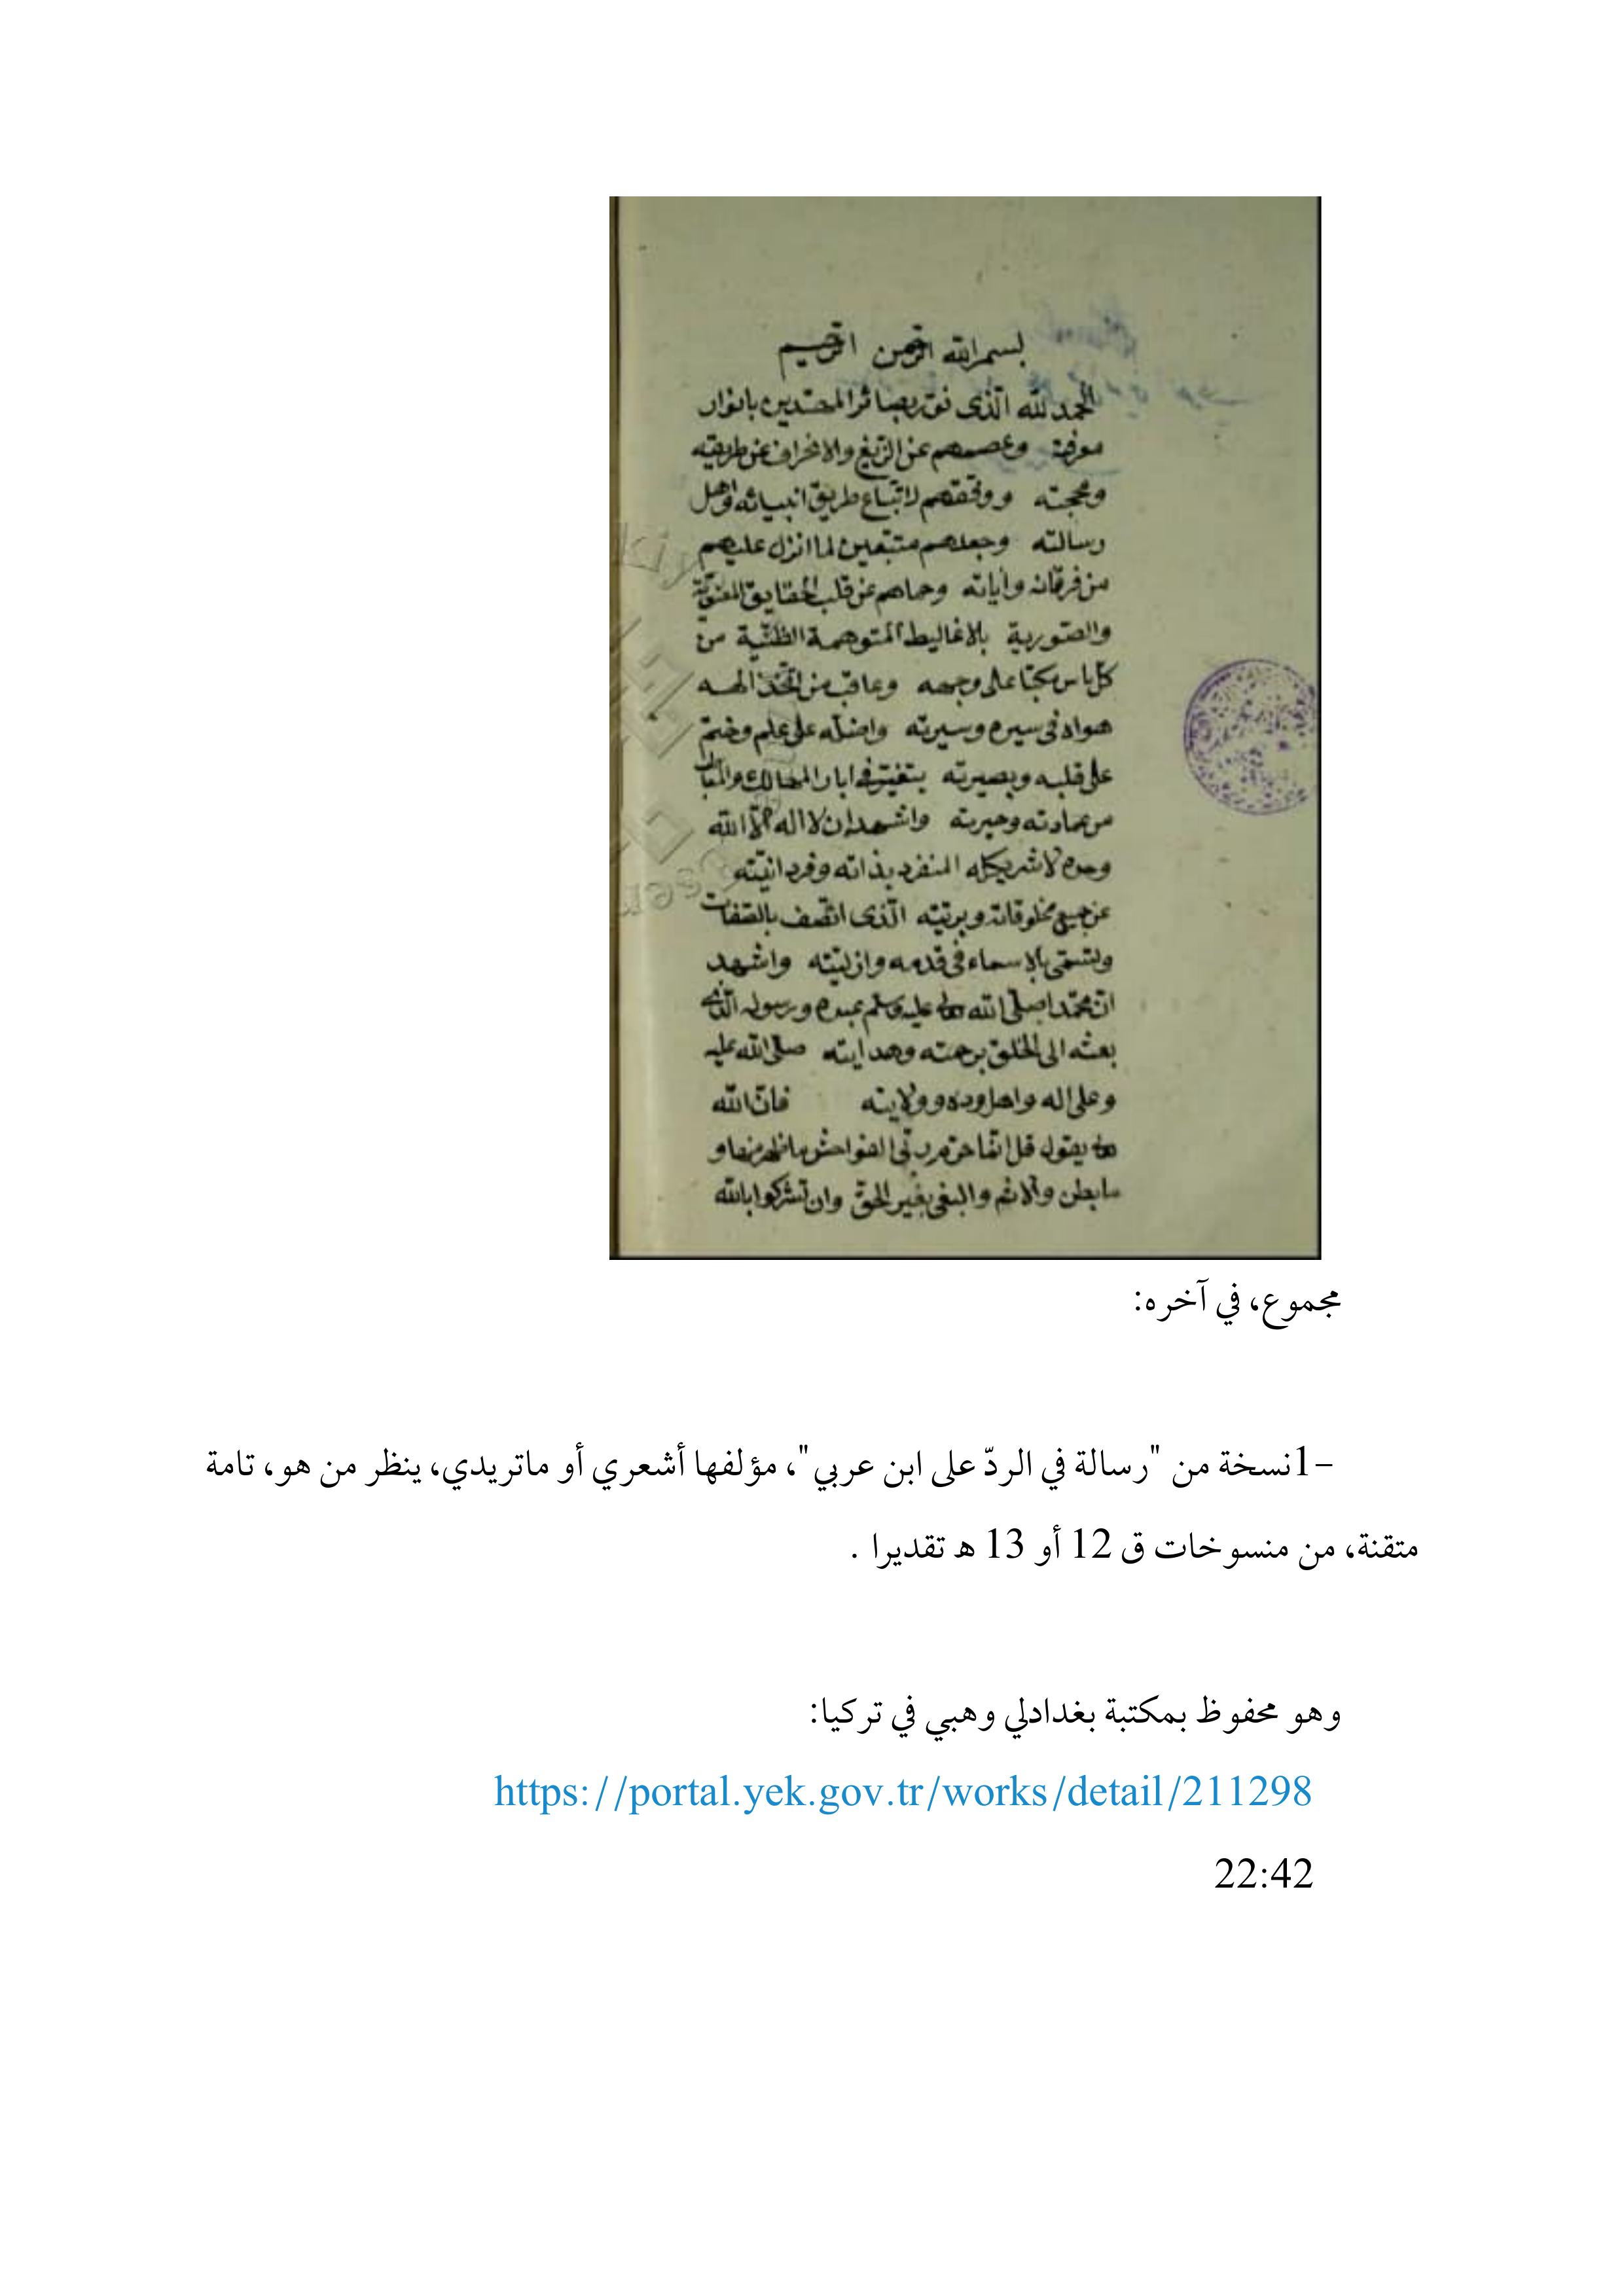 بسم الله الرحمن الرحيم
الحمد لله الذى نور بصائر المهتدين بانوار
معرفته وعصمهم عن الزيغ والانحراف عن طريقته
ومحجته ووفقهم لاتباع طريق انبيائه واهل
رسالته وجعلهم متبعين لما انزل عليهم
من فرقانه وآياته وحماهم عن قلب الحقايق المعنوية
والصورية بالاغاليط المتوهمة الظنية من
كل مكبا على وجهه وعاقب من اتخذ الهه
هواه فى سيره وسيرته واضله على علم وختم
على قلبه وبصيرته فى ابار المهالك
من وحيرته واشهد ان لا اله الا الله
وحده لا شريك له المنفرد بذاته وفردانيته
عن جميع مخلوقاته وبريته الذى اتصف بالصفات
وتسمى بالاسماء فى قدمه وازليته واشهد
ان محمدا صلى الله عليه وسلم عبده ورسوله الذى
بعثه الى الخلق برحمته وهدايته صلى الله عليه
وعلى اله واهل وده وولايته فان الله
يقول قل انما حرم ربى الفواحش ما ظهر منها و
ما بطن والاثم والبغى بغير الحق وان تشركوا بالله
مجموع، في آخره:
1- نسخة من "رسالة في الردّ على ابن عربي"، مؤلفها أشعري أو ماتريدي، ينظر من هو، تامة
متقنة، من منسوخات ق 12 أو 13 ه تقديرا .
وهو محفوظ بمكتبة بغدادلي وهبي في تركيا:
https://portal.yek.gov.tr/works/detail/211298
22:42